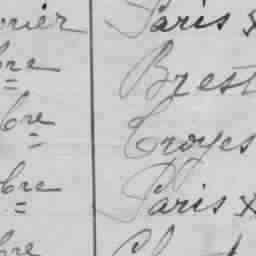 vrier Paris X
bre Brest
bre Troyes
bre Paris X
bre